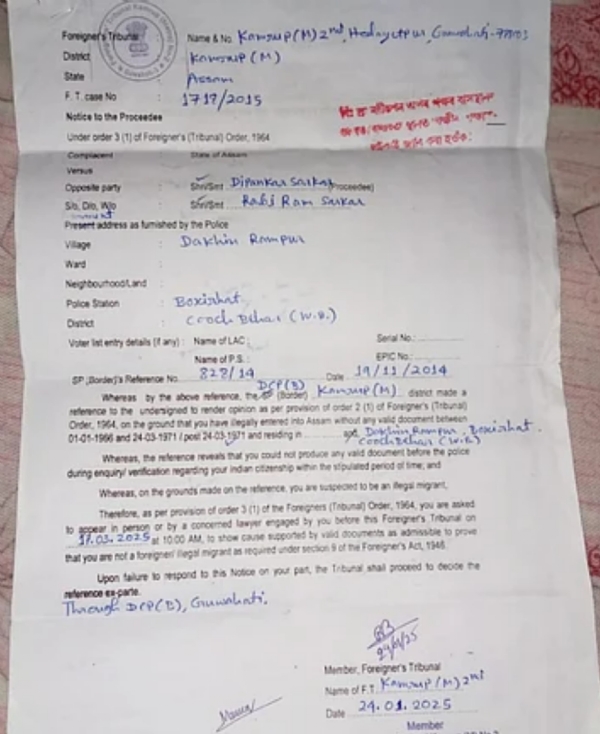 Foreigner's Tribunal : Name & No. Kamrup (M) 2nd, Hedayetpur, Guwahati-781003
District : Kamrup (M)
State : Assam
F. T. case No : 1717/2015
Notice to the Proceedee
Under order 3 (1) of Foreigner's (Tribunal) Order, 1964
Complacent : State of Assam
Versus
Opposite party : Shri/Smt Dipankar Sarkar (Proceedee)
S/o, D/o, W/o : Shri/Smt Rabi Ram Sarkar
Present address as furnished by the Police
Village : Dakhin Rampur
Ward :
Neighbourhood/Land :
Police Station : Boxirhat
District : Cooch Behar (W.B.)
Voter list entry details (if any) : Name of LAC : Serial No.:
Name of P.S. : EPIC No.:
SP (Border)'s Reference No. 828/14 Date 19/11/2014
Whereas by the above reference, the DCP(B) (Border) Kamrup (M) district made a
reference to the undersigned to render opinion as per provision of order 2 (1) of Foreigner's (Tribunal)
Order, 1964, on the ground that you have illegally entered into Assam without any valid document between
01-01-1966 and 24-03-1971 / post 24-03-1971 and residing in Dakhin Rampur, Boxirhat.
Cooch Behar (W.B)
Whereas, the reference reveals that you could not produce any valid document before the police
during enquiry/ verification regarding your indian citizenship within the stipulated period of time; and
Whereas, on the grounds made on the reference, you are suspected to be an illegal migrant,
Therefore, as per provision of order 3 (1) of the Foreigners (Tribunal) Order, 1964, you are asked
to appear in person or by a concerned lawyer engaged by you before this Foreigner's Tribunal on
17.03.2025 at 10:00 AM, to show cause supported by valid documents as admissible to prove
that you are not a foreigner/ illegal migrant as required under section 9 of the Foreigner's Act, 1946.
Upon failure to respond to this Notice on your part, the Tribunal shall proceed to decide the
reference ex-parte.
Through DCP(B), Guwahati.
Member, Foreigner's Tribunal
Name of F.T. Kamrup (M) 2nd
Date 24.01.2025
Member